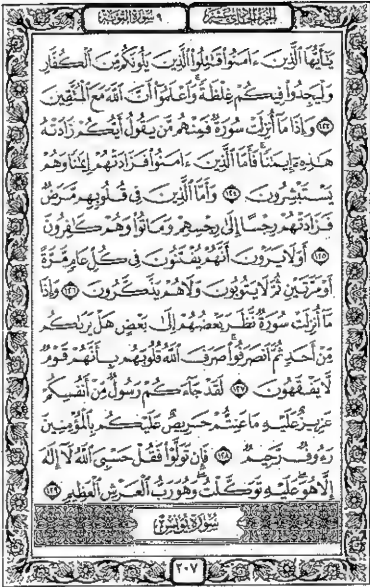 الجزء الحادي عشر ٩ سورة التوبة
يَـٰٓأَيُّهَا ٱلَّذِينَ ءَامَنُوا۟ قَـٰتِلُوا۟ ٱلَّذِينَ يَلُونَكُم مِّنَ ٱلْكُفَّارِ
وَلْيَجِدُوا۟ فِيكُمْ غِلْظَةً ۚ وَٱعْلَمُوٓا۟ أَنَّ ٱللَّهَ مَعَ ٱلْمُتَّقِينَ
١٢٣ وَإِذَا مَآ أُنزِلَتْ سُورَةٌ فَمِنْهُم مَّن يَقُولُ أَيُّكُمْ زَادَتْهُ
هَـٰذِهِۦٓ إِيمَـٰنًا ۚ فَأَمَّا ٱلَّذِينَ ءَامَنُوا۟ فَزَادَتْهُمْ إِيمَـٰنًا وَهُمْ
يَسْتَبْشِرُونَ ١٢٤ وَأَمَّا ٱلَّذِينَ فِى قُلُوبِهِم مَّرَضٌ
فَزَادَتْهُمْ رِجْسًا إِلَىٰ رِجْسِهِمْ وَمَاتُوا۟ وَهُمْ كَـٰفِرُونَ
١٢٥ أَوَلَا يَرَوْنَ أَنَّهُمْ يُفْتَنُونَ فِى كُلِّ عَامٍ مَّرَّةً
أَوْ مَرَّتَيْنِ ثُمَّ لَا يَتُوبُونَ وَلَا هُمْ يَذَّكَّرُونَ ١٢٦ وَإِذَا
مَآ أُنزِلَتْ سُورَةٌ نَّظَرَ بَعْضُهُمْ إِلَىٰ بَعْضٍ هَلْ يَرَىٰكُم
مِّنْ أَحَدٍ ثُمَّ ٱنصَرَفُوا۟ ۚ صَرَفَ ٱللَّهُ قُلُوبَهُم بِأَنَّهُمْ قَوْمٌ
لَّا يَفْقَهُونَ ١٢٧ لَقَدْ جَآءَكُمْ رَسُولٌ مِّنْ أَنفُسِكُمْ
عَزِيزٌ عَلَيْهِ مَا عَنِتُّمْ حَرِيصٌ عَلَيْكُم بِٱلْمُؤْمِنِينَ
رَءُوفٌ رَّحِيمٌ ١٢٨ فَإِن تَوَلَّوْا۟ فَقُلْ حَسْبِىَ ٱللَّهُ لَآ إِلَـٰهَ
إِلَّا هُوَ ۖ عَلَيْهِ تَوَكَّلْتُ ۖ وَهُوَ رَبُّ ٱلْعَرْشِ ٱلْعَظِيمِ ١٢٩
سُورَةُ يُونُسَ
٢٠٧